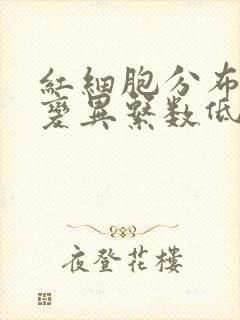 紅細胞分布
變異繫数低
夜登花樓